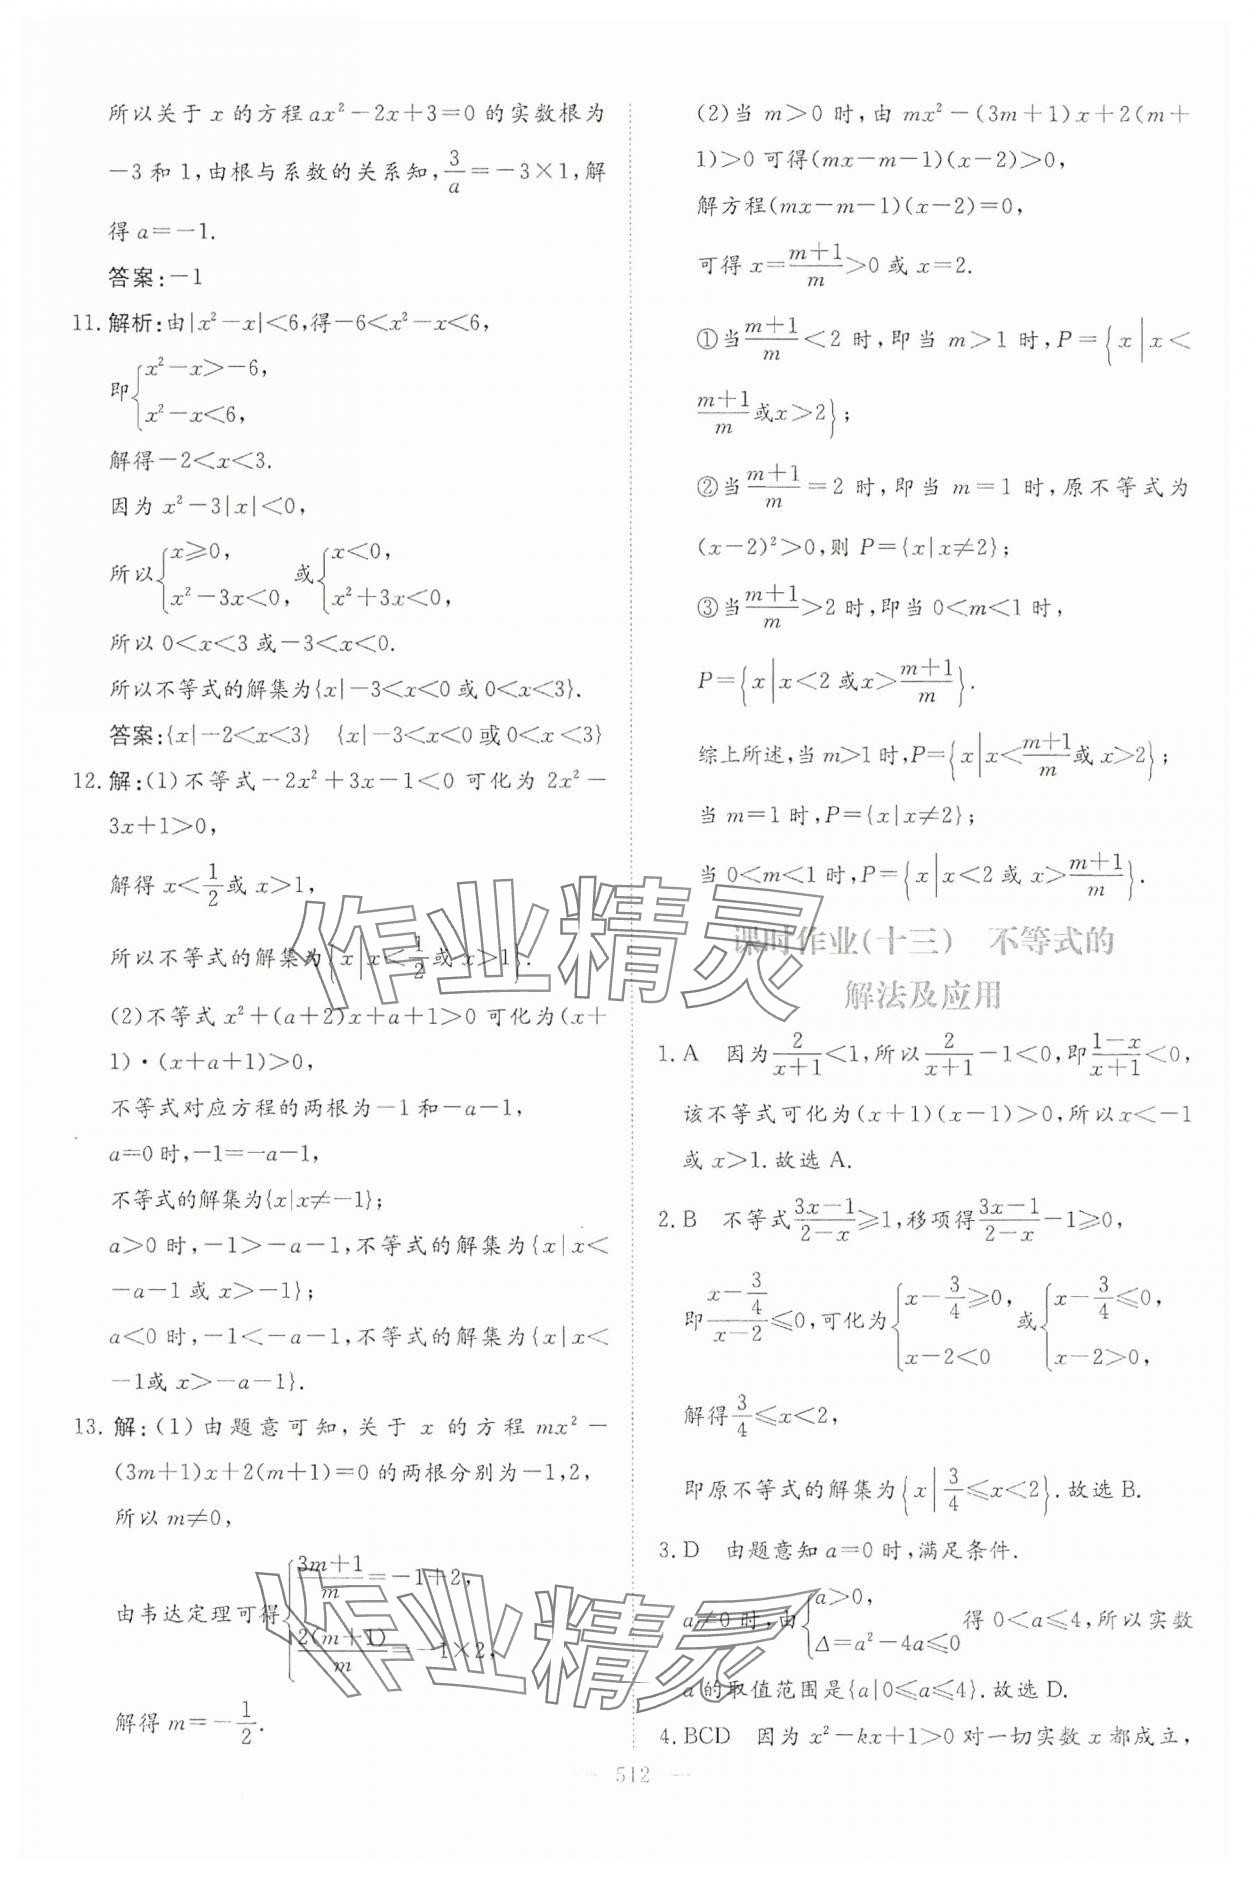 所以关于 x 的方程 ax²－2x＋3＝0 的实数根为
－3 和 1,由根与系数的关系知,3/a＝－3×1,解
得 a＝－1.
答案:－1
11. 解析:由|x²－x|<6,得－6<x²－x<6,
即{x²－x>－6, x²－x<6,
解得－2<x<3.
因为 x²－3|x|<0,
所以{x≥0, x²－3x<0, 或{x<0, x²＋3x<0,
所以 0<x<3 或－3<x<0.
所以不等式的解集为{x|－3<x<0 或 0<x<3}.
答案:{x|－2<x<3} {x|－3<x<0 或 0<x<3}
12. 解:(1)不等式－2x²＋3x－1<0 可化为 2x²－
3x＋1>0,
解得 x<1/2 或 x>1,
所以不等式的解集为{x|x<1/2 或 x>1}.
(2)不等式 x²＋(a＋2)x＋a＋1>0 可化为(x＋
1)·(x＋a＋1)>0,
不等式对应方程的两根为－1 和－a－1,
a＝0 时,－1＝－a－1,
不等式的解集为{x|x≠－1};
a>0 时,－1>－a－1,不等式的解集为{x|x<
－a－1 或 x>－1};
a<0 时,－1<－a－1,不等式的解集为{x|x<
－1或 x>－a－1}.
13. 解:(1)由题意可知,关于 x 的方程 mx²－
(3m＋1)x＋2(m＋1)＝0 的两根分别为－1,2,
所以 m≠0,
由韦达定理可得{(3m＋1)/m＝－1＋2, 2(m＋1)/m＝－1×2,
解得 m＝－1/2.
(2)当 m>0 时,由 mx²－(3m＋1)x＋2(m＋
1)>0 可得(mx－m－1)(x－2)>0,
解方程(mx－m－1)(x－2)＝0,
可得 x＝(m＋1)/m>0 或 x＝2.
①当(m＋1)/m<2 时,即当 m>1 时,P＝{x|x<
(m＋1)/m 或 x>2};
②当(m＋1)/m＝2 时,即当 m＝1 时,原不等式为
(x－2)²>0,则 P＝{x|x≠2};
③当(m＋1)/m>2 时,即当 0<m<1 时,
P＝{x|x<2 或 x>(m＋1)/m}.
综上所述,当 m>1 时,P＝{x|x<(m＋1)/m 或 x>2};
当 m＝1 时,P＝{x|x≠2};
当 0<m<1 时,P＝{x|x<2 或 x>(m＋1)/m}.
课时作业(十三) 不等式的
解法及应用
1. A 因为2/(x＋1)<1,所以2/(x＋1)－1<0,即(1－x)/(x＋1)<0,
该不等式可化为(x＋1)(x－1)>0,所以x<－1
或 x>1.故选 A.
2. B 不等式(3x－1)/(2－x)≥1,移项得(3x－1)/(2－x)－1≥0,
即(x－3/4)/(x－2)≤0,可化为{x－3/4≥0, x－2<0 或{x－3/4≤0, x－2>0,
解得3/4≤x<2,
即原不等式的解集为{x|3/4≤x<2}.故选 B.
3. D 由题意知 a＝0 时,满足条件.
a≠0 时,由{a>0, Δ＝a²－4a≤0 得 0<a≤4,所以实数
a的取值范围是{a|0≤a≤4}.故选 D.
4. BCD 因为 x²－kx＋1>0 对一切实数 x 都成立,
— 512 —
作业精灵
作业精灵